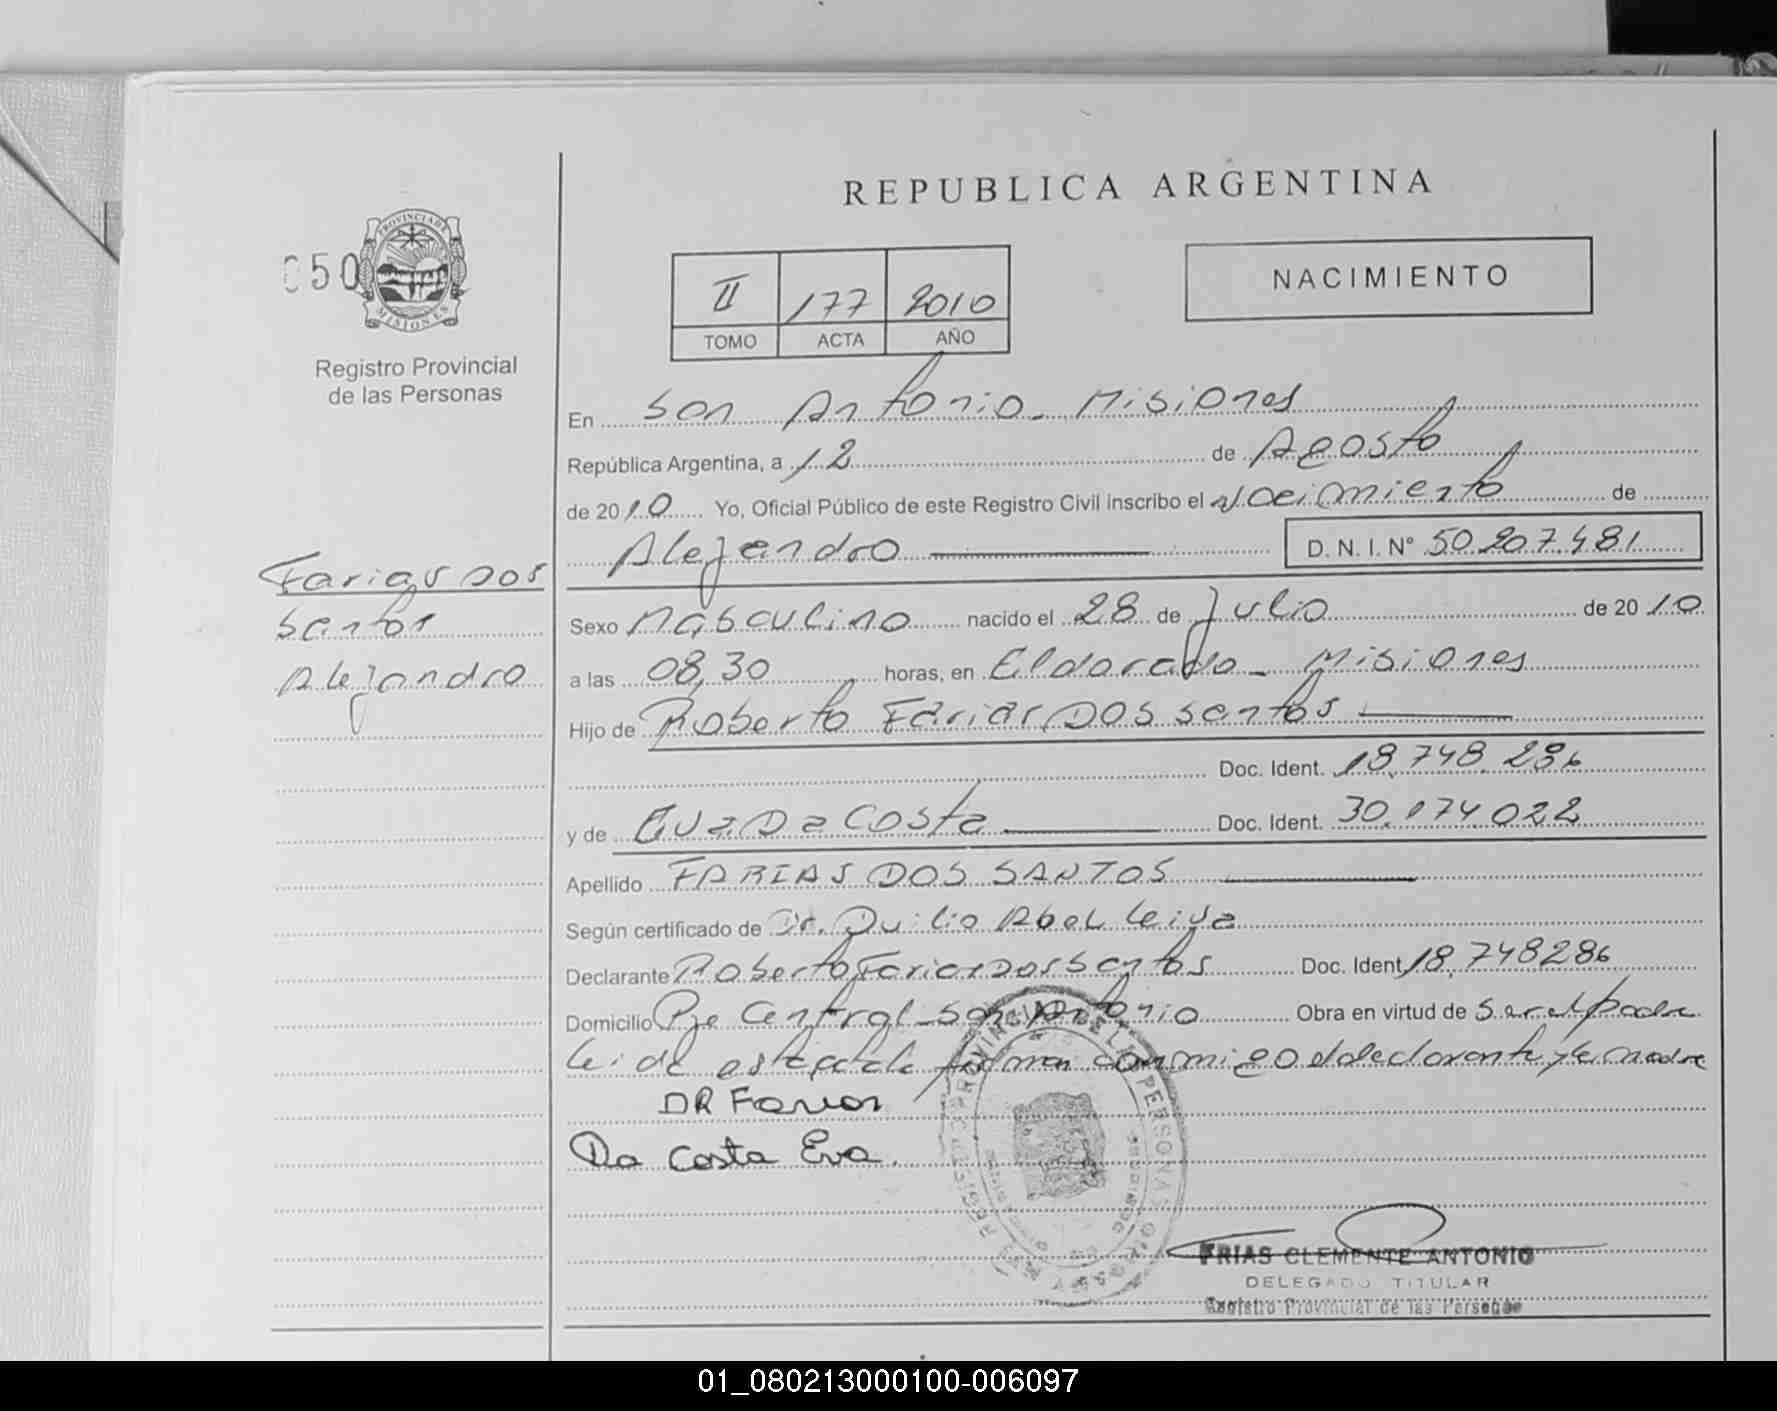 REPUBLICA ARGENTINA
050
PROVINCIA DE MISIONES
Registro Provincial
de las Personas
II 177 2010
TOMO ACTA AÑO
NACIMIENTO
En San Antonio - Misiones
República Argentina, a 12 de Agosto
de 2010 Yo, Oficial Público de este Registro Civil inscribo el Nacimiento de
Alejandro D. N. I. Nº 50.207.481
Farias Dos
Santos
Alejandro
Sexo Masculino nacido el 28 de Julio de 2010
a las 08,30 horas, en Eldorado - Misiones
Hijo de Roberto Farias Dos Santos
Doc. Ident. 18.748.286
y de Eva Da Costa Doc. Ident. 30.174.022
Apellido FARIAS DOS SANTOS
Según certificado de Dr. Duilio Abel Leiva
Declarante Roberto Farias Dos Santos Doc. Ident 18.748286
Domicilio Pje Central - San Antonio Obra en virtud de Ser el padre
leida esta acta la firman conmigo el declarante y la madre
DR Farias
Da Costa Eva.
FRIAS CLEMENTE ANTONIO
DELEGADO TITULAR
Registro Provincial de las Personas
01_080213000100-006097